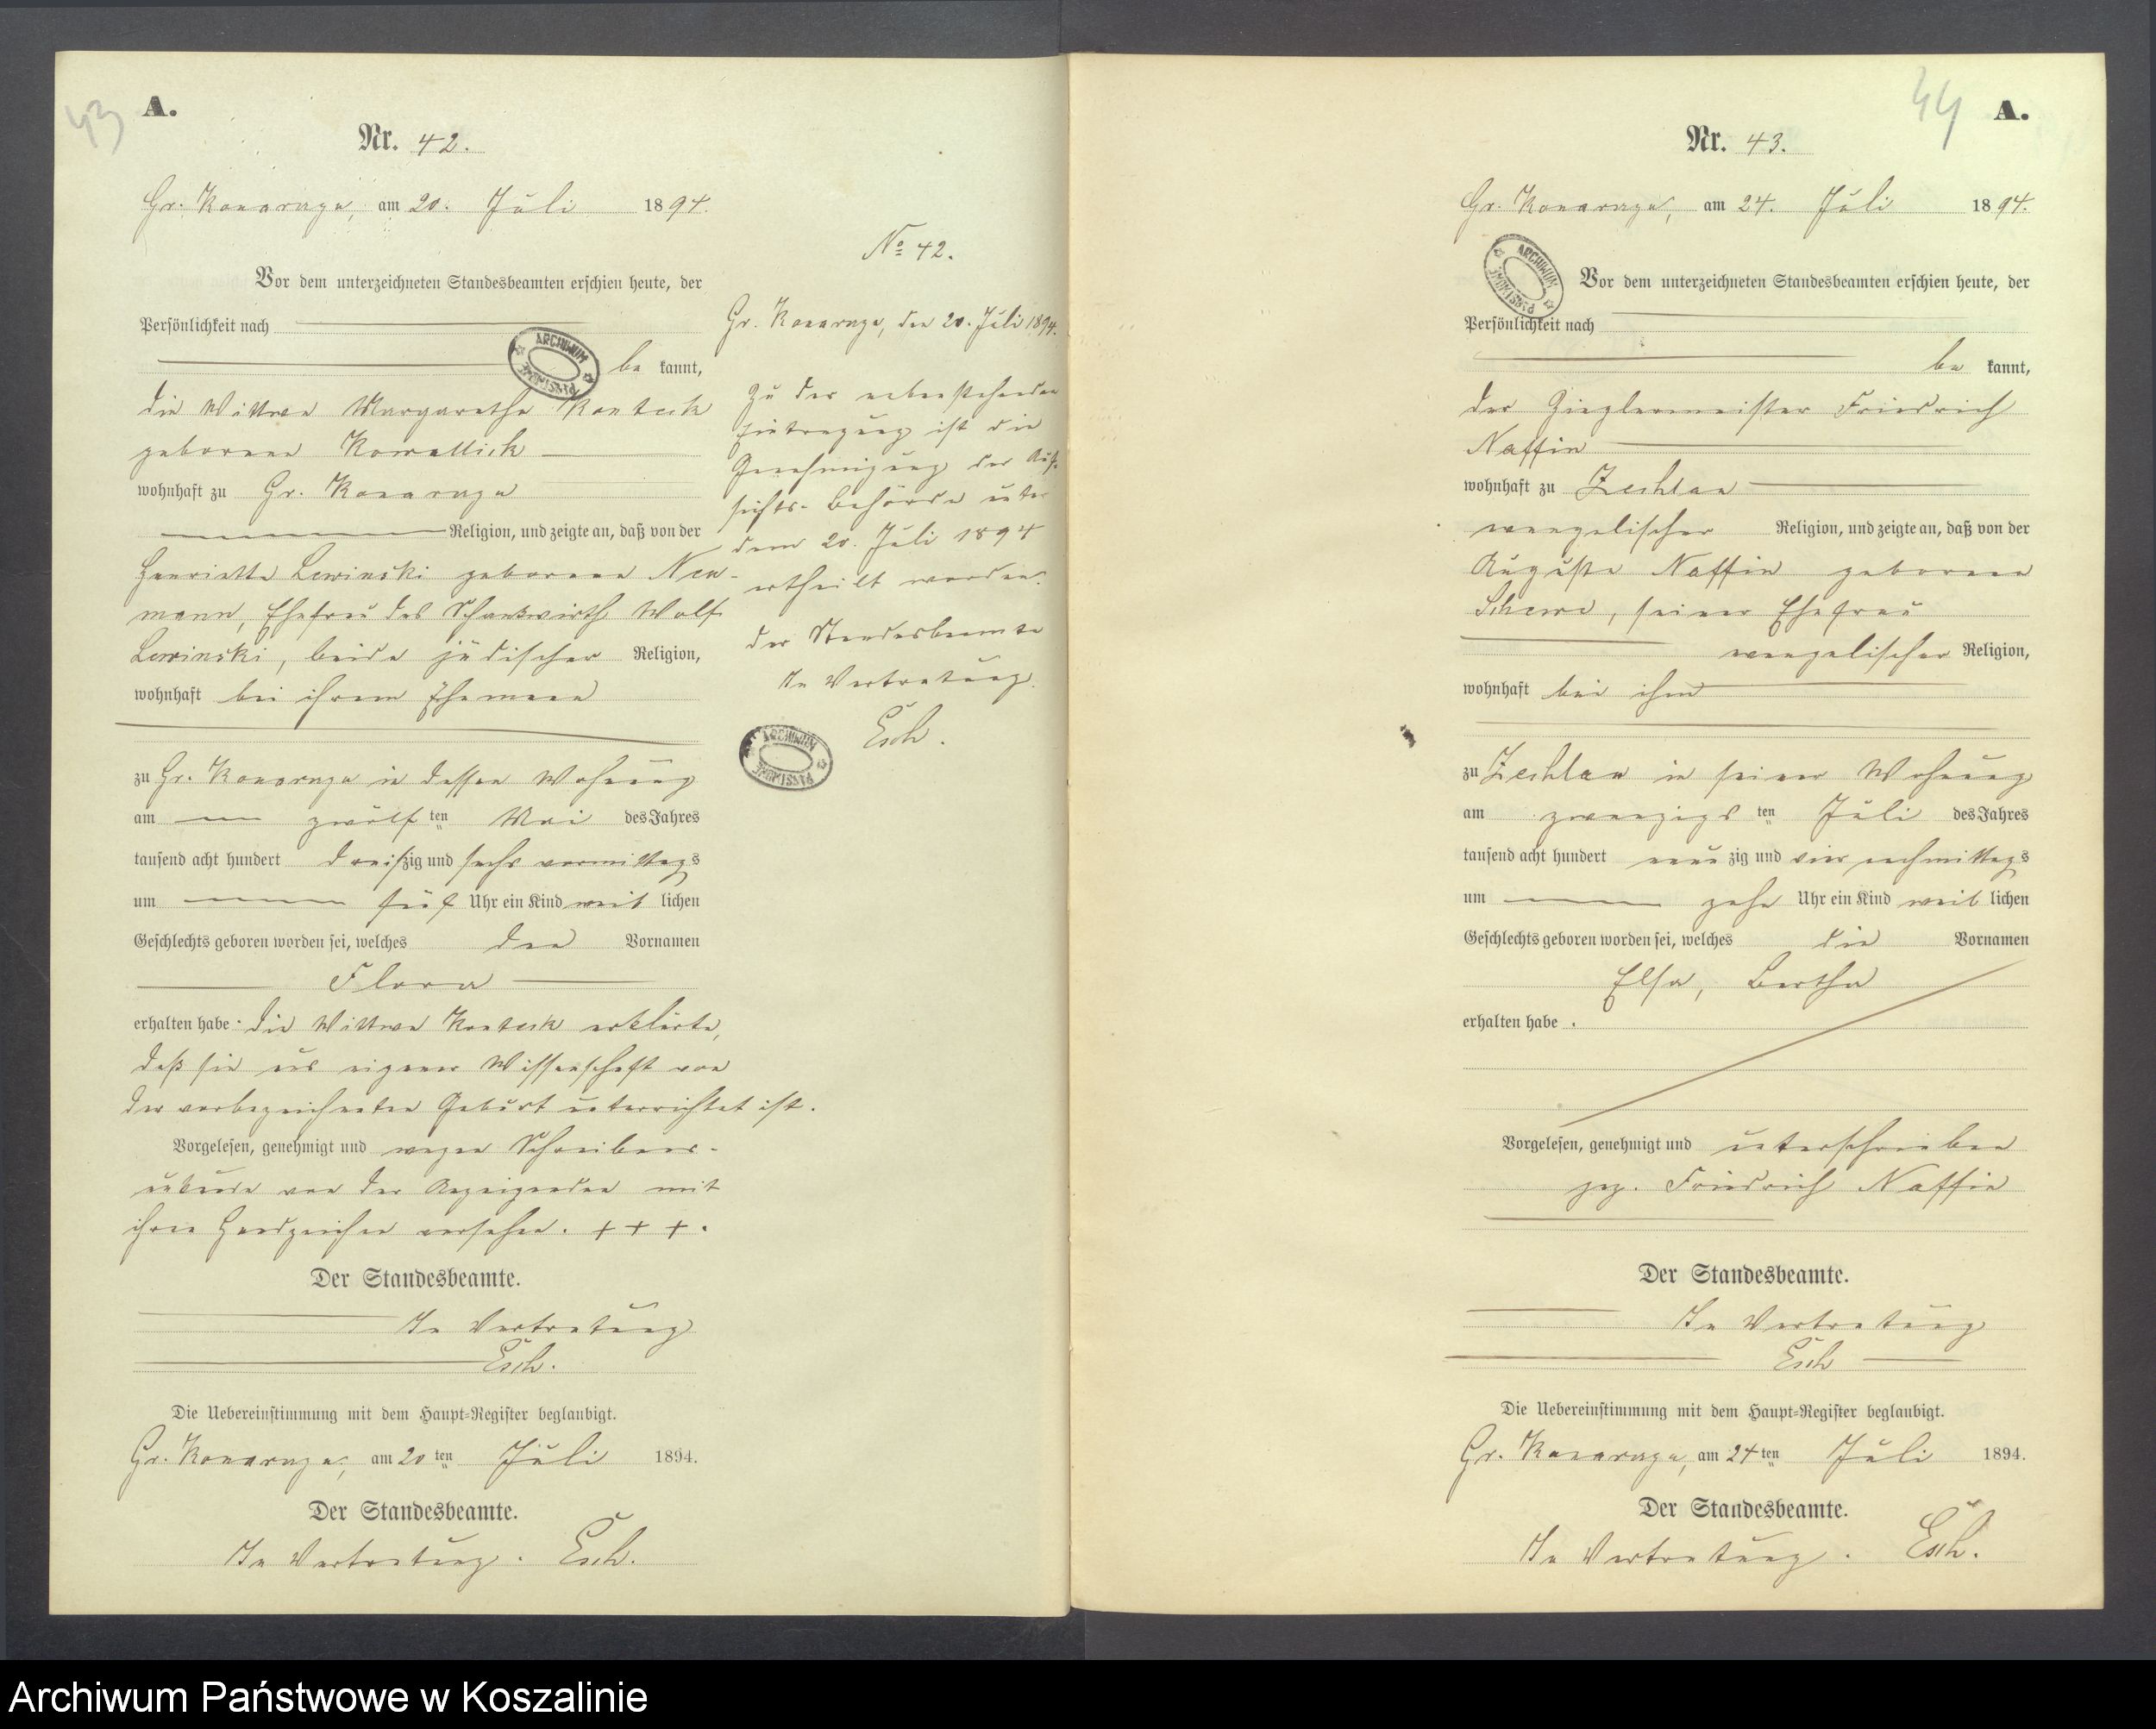 43
A.
Nr. 42.
Gr. Konarzyn, am 20. Juli 1894.
Vor dem unterzeichneten Standesbeamten erschien heute, der
Persönlichkeit nach
be kannt,
die Wittwe Margarethe
geborene Kowallick
wohnhaft zu Gr. Konarzyn
Religion, und zeigte an, daß von der
Henriette Lewinski geborene Neu-
mann, Ehefrau des Schankwirth Wolf
Lewinski, beide jüdischer Religion,
wohnhaft bei ihrem Ehemann
zu Gr. Konarzyn in dessen Wohnung
am zwölf ten Mai des Jahres
tausend acht hundert dreißig und sechs vormittags
um fünf Uhr ein Kind weib lichen
Geschlechts geboren worden sei, welches den Vornamen
Flora
erhalten habe. Die Wittwe erklärte,
daß sie aus eigener Wissenschaft von
der vorbezeichneten Geburt unterrichtet ist.
Vorgelesen, genehmigt und wegen Schreibens-
unkunde von der Anzeigenden mit
ihren Handzeichen versehen. + + +.
Der Standesbeamte.
In Vertretung
Esch.
Die Uebereinstimmung mit dem Haupt-Register beglaubigt.
Gr. Konarzyn, am 20 ten Juli 1894.
Der Standesbeamte.
In Vertretung. Esch.
No 42.
Gr. Konarzyn, den 20. Juli 1894.
Zu der nebenstehenden
Eintragung ist die
Genehmigung der Auf-
sichts-Behörde unter
dem 20. Juli 1894
ertheilt worden.
Der Standesbeamte
In Vertretung.
Esch.
ARCHIWUM PAŃSTWOWE
ARCHIWUM PAŃSTWOWE
44
A.
Nr. 43.
Gr. Konarzyn, am 24. Juli 1894.
ARCHIWUM PAŃSTWOWE
Vor dem unterzeichneten Standesbeamten erschien heute, der
Persönlichkeit nach
be kannt,
der Zieglermeister Friedrich
Naffin
wohnhaft zu Zechlau
evangelischer Religion, und zeigte an, daß von der
Auguste Naffin geborene
Schewe, seiner Ehefrau
evangelischer Religion,
wohnhaft bei ihm
zu Zechlau in seiner Wohnung
am zwanzigs ten Juli des Jahres
tausend acht hundert neun zig und vier nachmittags
um zehn Uhr ein Kind weib lichen
Geschlechts geboren worden sei, welches die Vornamen
Elsa, Bertha
erhalten habe.
Vorgelesen, genehmigt und unterschrieben
gez. Friedrich Naffin
Der Standesbeamte.
In Vertretung
Esch
Die Uebereinstimmung mit dem Haupt-Register beglaubigt.
Gr. Konarzyn, am 24 ten Juli 1894.
Der Standesbeamte.
In Vertretung. Esch.
Archiwum Państwowe w Koszalinie